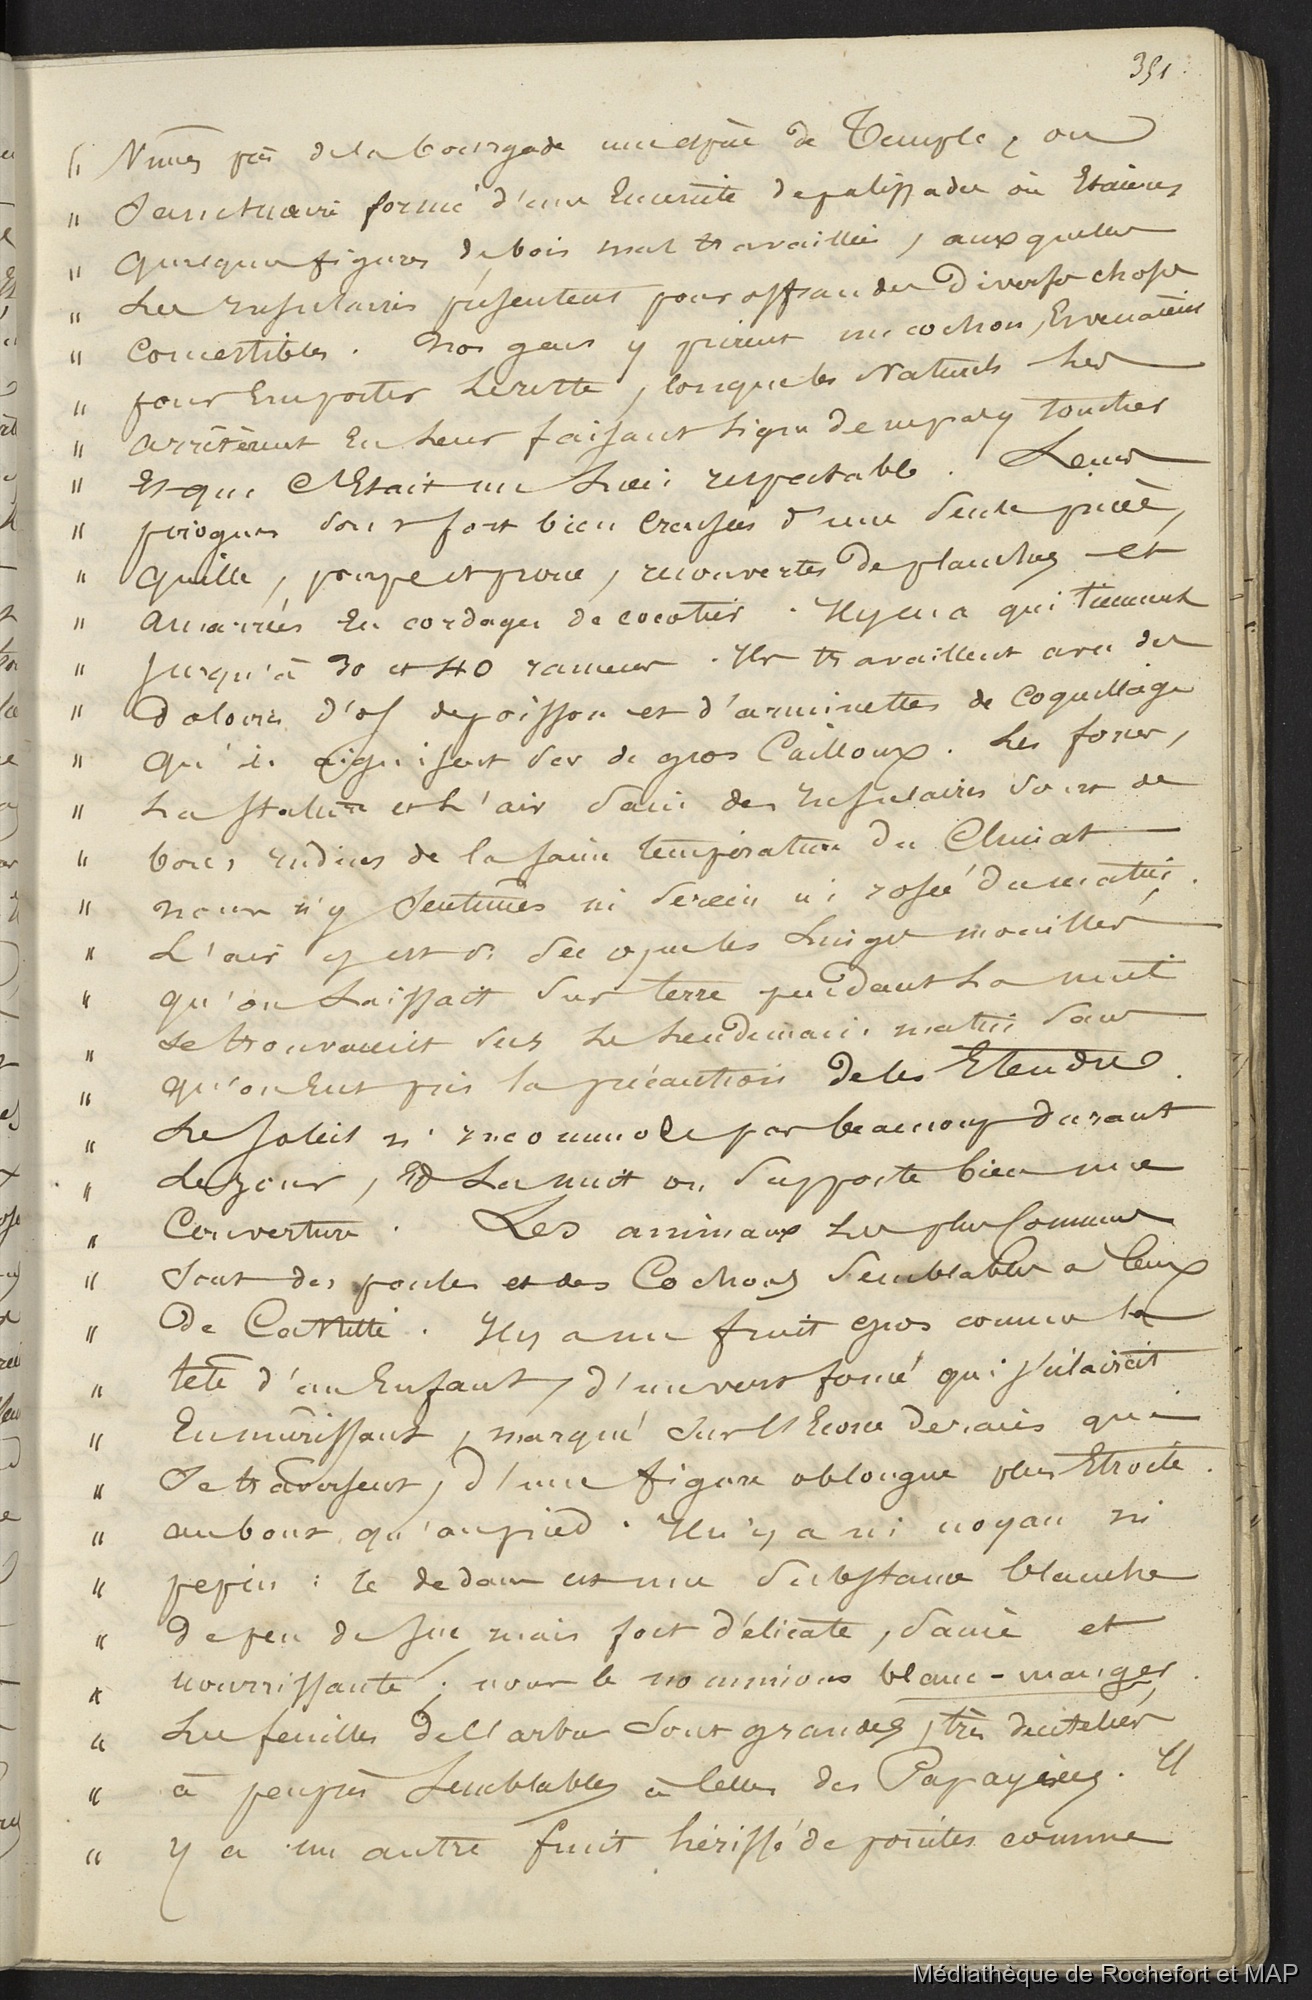 351
" Nîmes près de la bourgade une espèce de Temple, ou
" Sanctuaire formé d'une Enceinte de palissades où Etaient
" quelques figures de bois mal travaillées, auxquelles
" Les insulaires présentent pour offrandes Diverses choses
" comestibles. Nos gens y prirent un cochon, Et venaient
" pour Emporter Le reste, lorsque les Naturels Les
" arrêtèrent En Leur faisant signe de n'y pas toucher
" Et que C'Etait un Lieu respectable. Leurs
" pirogues sont fort bien Creusées d'une seule pièce,
" quille, poupe et proue, recouvertes de planches et
" amarrées En cordages de cocotier. Il y en a qui tiennent
" jusqu'à 30 et 40 rameurs. Ils travaillent avec des
" doloires d'os de poisson et d'arminettes de coquillage
" qu'ils aiguisent sur de gros Cailloux. Les forces,
" La stature et L'air sain des insulaires sont de
" bons indices de la saine température du Climat
" nous n'y sentîmes ni serein ni rosée du matin.
" L'air y est si sec que les Linges mouillés
" qu'on Laissait sur terre pendant La nuit
" se trouvaient secs Le Lendemain matin sans
" qu'on Eut pris la précaution de les Etendre.
" Le soleil n'incommode pas beaucoup durant
" Le jour, Et La nuit on supporte bien une
" Couverture. Les animaux Les plus Communs
" Sont des poules et des Cochons semblables a Ceux
" De Castille. Il y a un fruit gros comme la
" tête d'un Enfant, d'un vert foncé qui s'éclaircit
" En mûrissant, marqué sur l'Ecorce de raies qui
" Se traversent, d'une figure oblongue plus Etroite.
" au bout qu'au pied. Il n'y a ni noyau ni
" pepin : le dedans est une substance blanche
" de peu de suc mais fort délicate, saine et
" nourrissante ; nous le nommions blanc-manger.
" Les feuilles de l'arbre sont grandes, très dentelées
" à peu près semblables à celles des Papayers. Il
" y a un autre fruit hérissé de pointes comme
Médiathèque de Rochefort et MAP